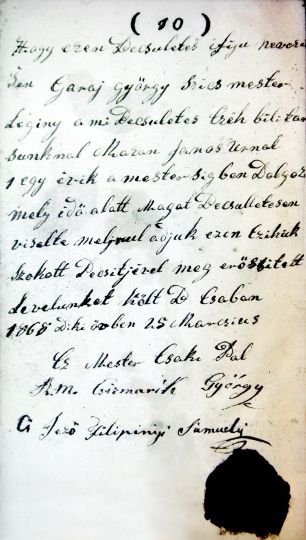 ( 10 )
Hogy ezen Decsuletes ifiju nevezé
sen Garaj György Szics mester
Leginy a mi Decsuletes Czéh bilitar
sunknal Mazan Janos Urnal
1 egy évik a mestersigben Dolgozo
mely idő alatt Magat Decsulletesen
viselte melynul adjuk ezen Czihük
szokott Decsitjével meg erössitett
Levelünket költ D Csaban
1865 diki évben 25 Marczius
Cz Mester Csaki Pal
A. M. Csizmarik György
Cz Jező Filipinyi Sámuely